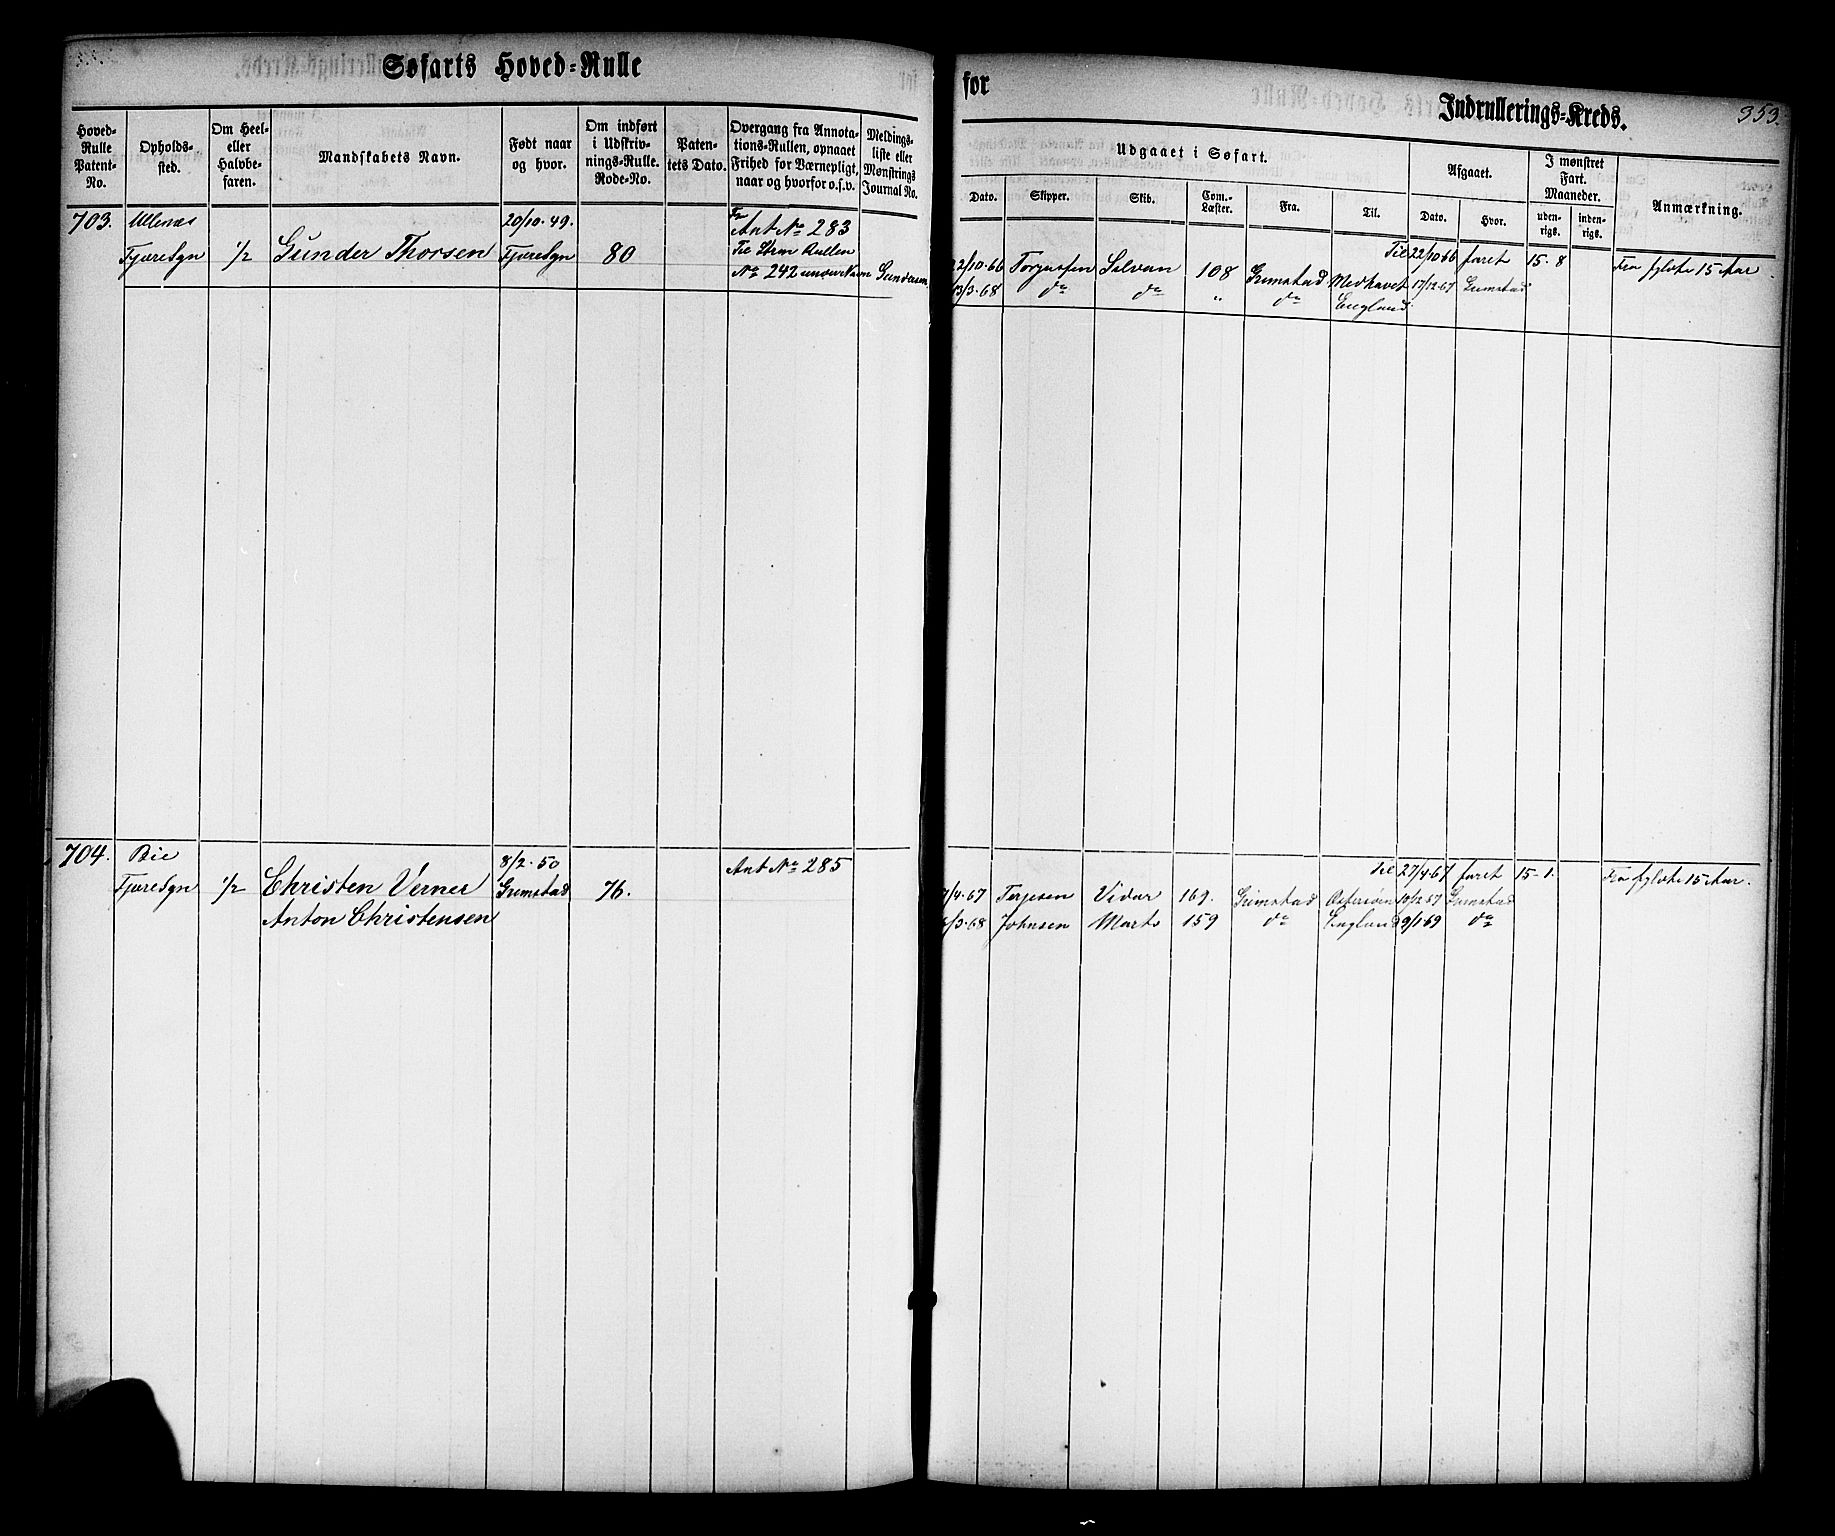 Søfarts Hoved-Rulle
Hoved-Rulle Patent-No.
Opholds-sted.
Om Heel- eller Halvbe-faren.
Mandskabets Navn.
Født naar og hvor.
Om indført i Udskriv-nings-Rulle. Rode-No.
Paten-tets Dato.
Overgang fra Annota-tions-Rullen, opnaaet Frihed for Værnepligt, naar og hvorfor o.s.v.
Meldings-liste eller Mønstrings Journal No.
703. Ullenæs 20/10.49. Fr Ant No 283
Fjære Sgn 1/2 Gunder Thorsen Fjære Sgn 80 Til Hvm Rullen
No 242 under Navn Gundersen
704. Bie 8/2.50 Ant No 285
Fjære Sgn 1/2 Christen Verner Grimstad 76.
Anton Christensen
for
Indrullerings-Kreds.
353.
Udgaaet i Søfart.
Afgaaet.
I mønstret Fart. Maaneder.
Anmærkning.
Dato.
Skipper.
Skib.
Com.-Læster.
Fra.
Til.
Dato.
Hvor.
uden-rigs.
inden-rigs.
Til 22/10 66 faret 15. 8 Fra fyldte 15 Aar.
22/10.66 Torjussen Silvan 108 Grimstad Medhavet 17/12.67 Grimstad
13/3.68 do do " do England
Til 27/4.67 faret 15-1. Fra fyldte 15 Aar.
7/4.67 Terjesen Vidar 169. Grimstad Østersøen 10/12.67 Grimstad
6/3.68 Johnsen Marts 159 do England 9/1.69 do